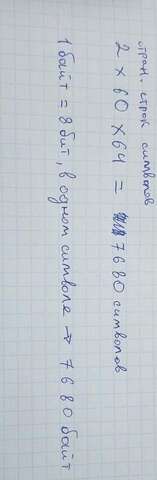 стран. строк символов
2 × 60 × 64 = 7680 символов
1 байт = 8 бит, в одном символе → 7680 байт